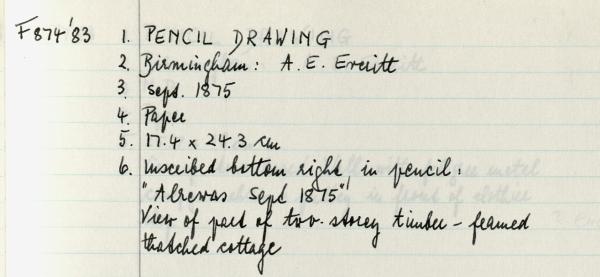 F874'83 1. PENCIL DRAWING
2. Birmingham: A. E. Everitt
3. Sept. 1875
4. Paper
5. 17.4 x 24.3 cm
6. Inscribed bottom right, in pencil:
"Alrewas Sept 1875"
View of part of two-storey timber-framed
thatched cottage